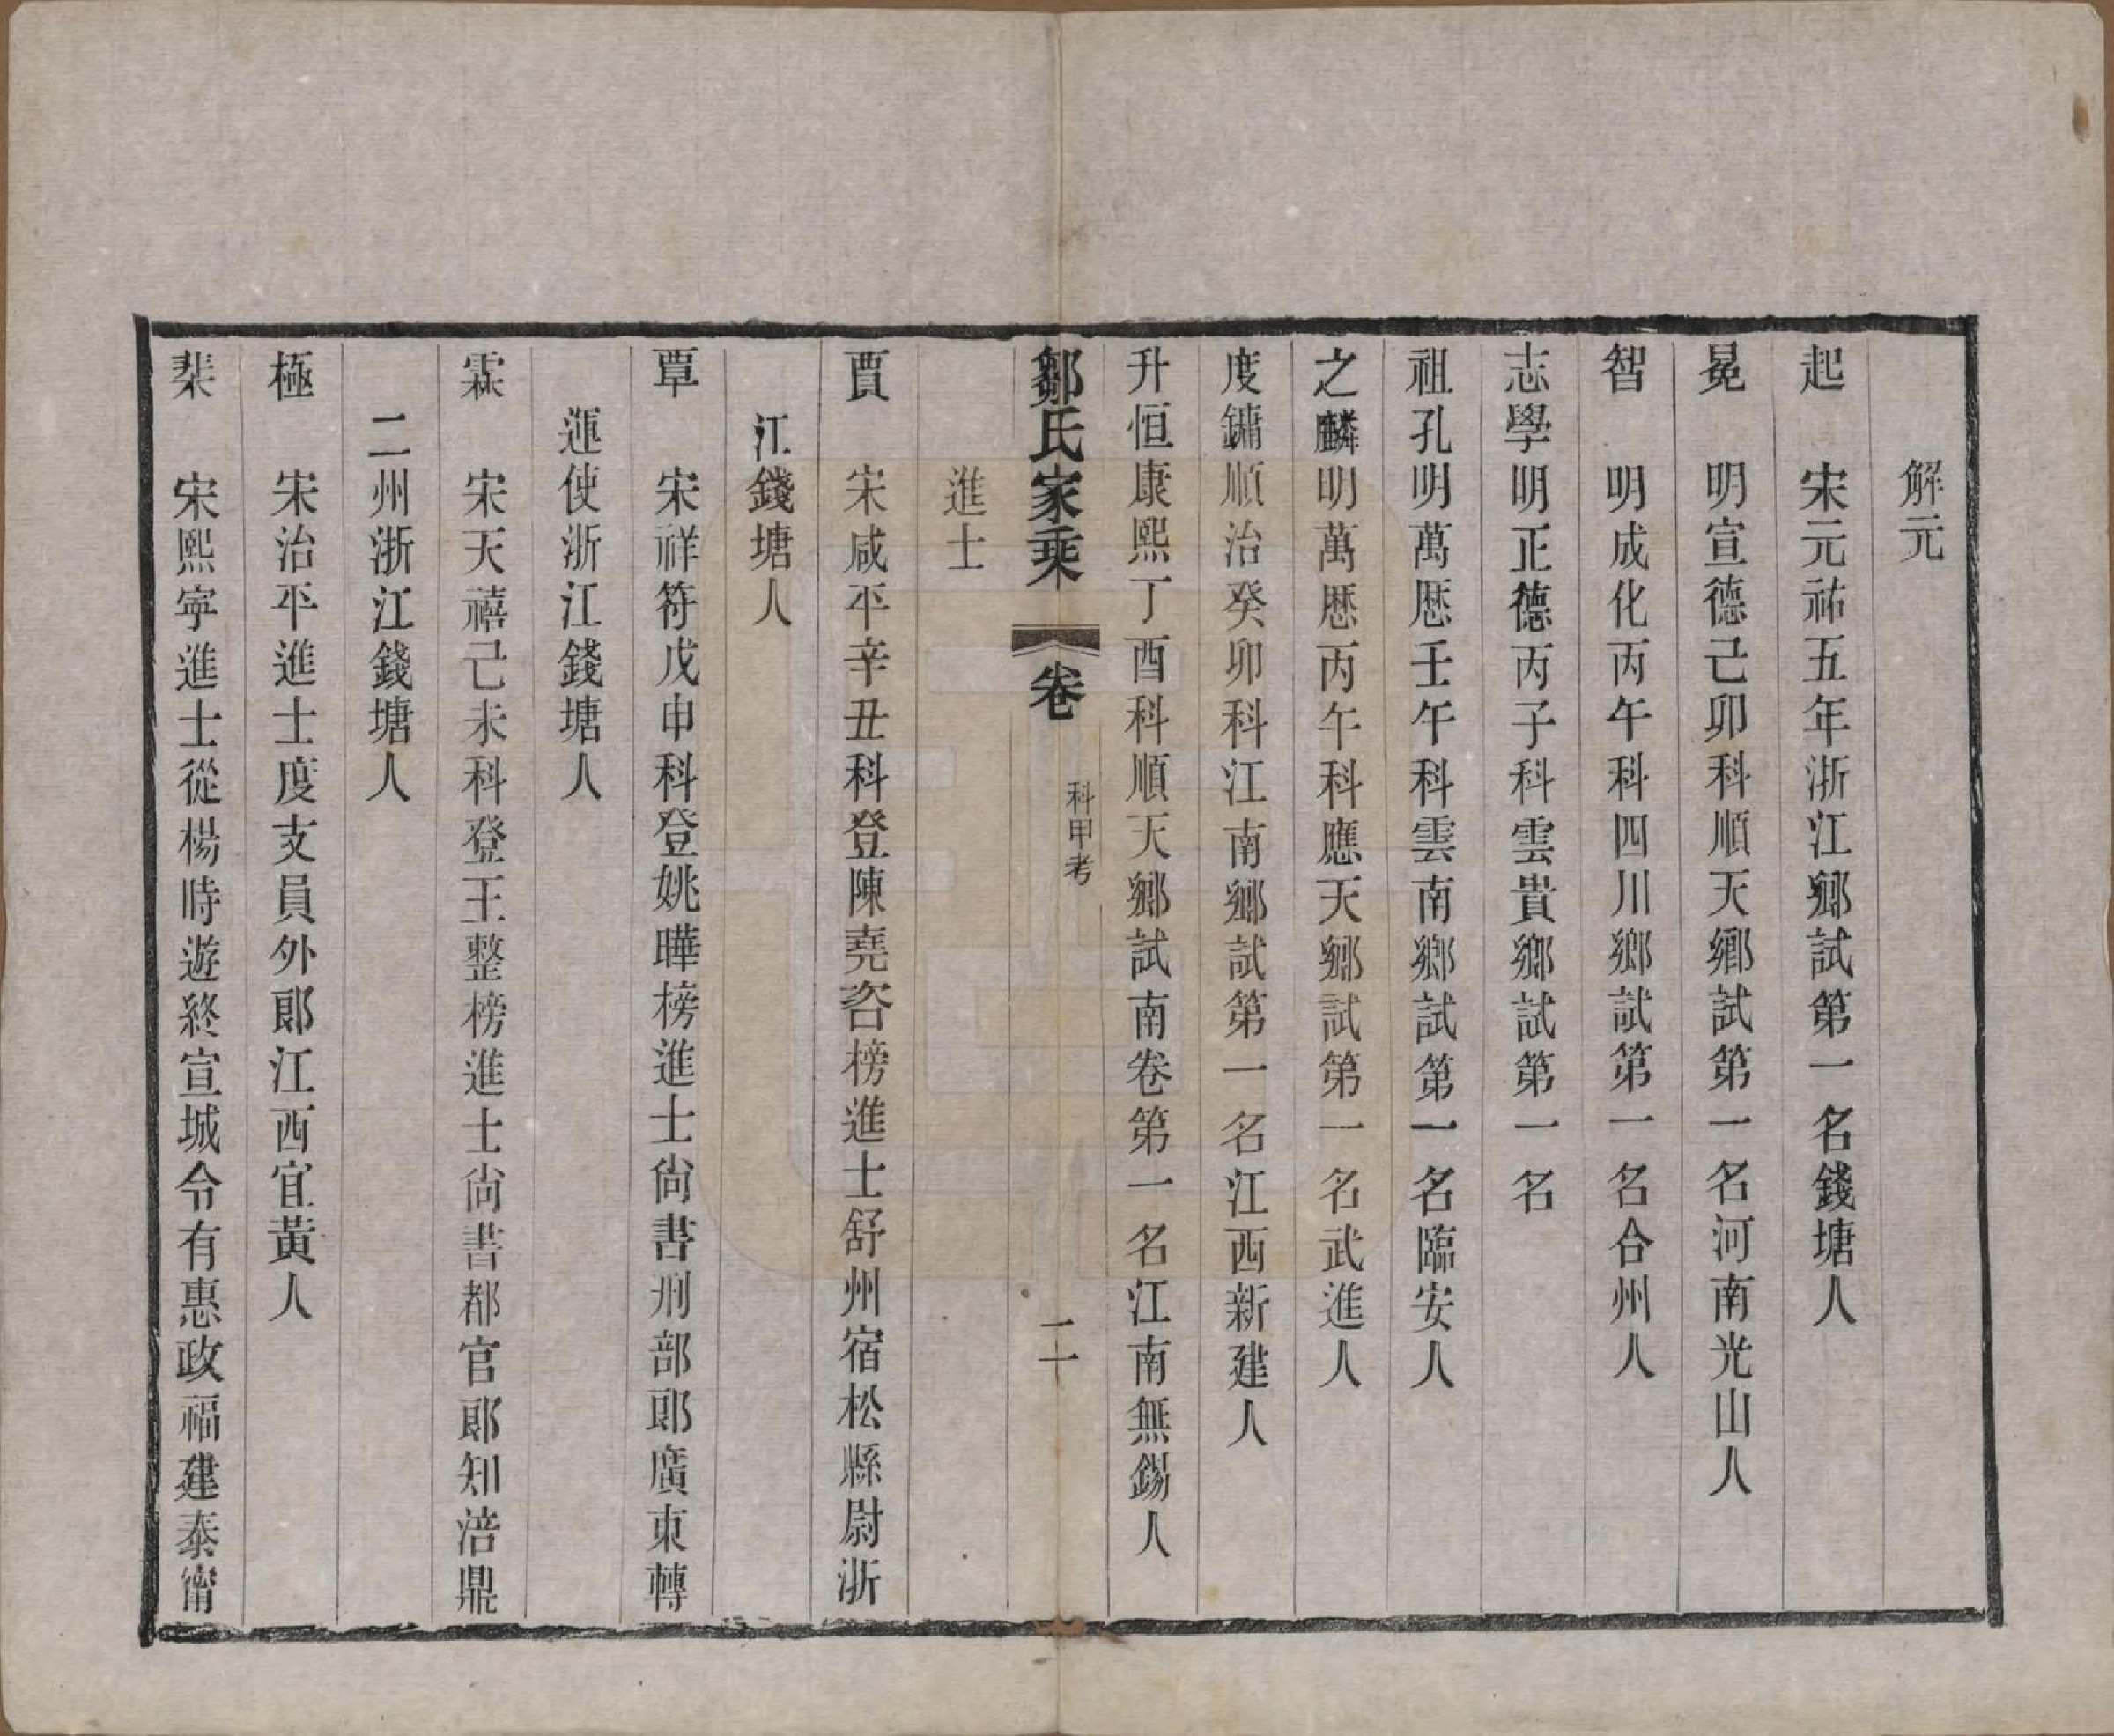 解元
起　宋元祐五年浙江鄉試第一名錢塘人
冕　明宣德己卯科順天鄉試第一名河南光山人
智　明成化丙午科四川鄉試第一名合州人
志學明正德丙子科雲貴鄉試第一名
祖孔明萬歷壬午科雲南鄉試第一名臨安人
之麟明萬歷丙午科應天鄉試第一名武進人
度鏞順治癸卯科江南鄉試第一名江西新建人
升恒康熙丁酉科順天鄉試南卷第一名江南無錫人
鄒氏家乘　卷　科甲考　二
進士
賈　宋咸平辛丑科登陳堯咨榜進士舒州宿松縣尉浙
江錢塘人
覃　宋祥符戊申科登姚曄榜進士尙書刑部郎廣東轉
運使浙江錢塘人
霖　宋天禧己未科登王整榜進士尙書都官郎知涪鼎
二州浙江錢塘人
極　宋治平進士度支員外郎江西宜黃人
棐　宋熙寧進士從楊時遊終宣城令有惠政福建泰甯